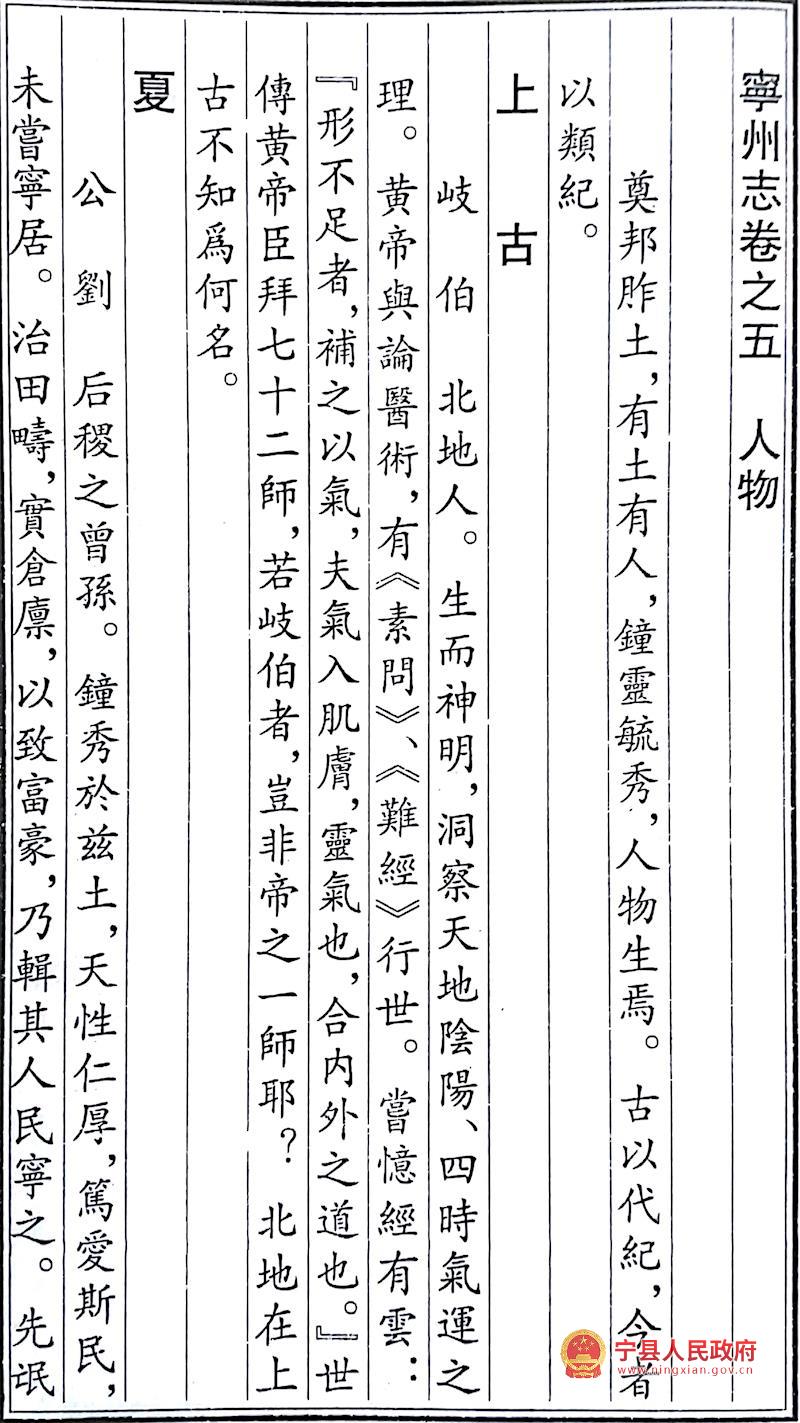 寧州志卷之五　人物
奠邦胙土，有土有人，鐘靈毓秀，人物生焉。古以代紀，今者
以類紀。
上古
岐伯　北地人。生而神明，洞察天地陰陽、四時氣運之
理。黄帝與論醫術，有《素問》、《難經》行世。嘗憶經有雲：
『形不足者，補之以氣，夫氣入肌膚，靈氣也，合内外之道也。』世
傳黄帝臣拜七十二師，若岐伯者，豈非帝之一師耶？北地在上
古不知爲何名。
夏
公劉　后稷之曾孫。鐘秀於兹土，天性仁厚，篤愛斯民，
未嘗寧居。治田疇，實倉廩，以致富豪，乃輯其人民寧之。先氓
宁县人民政府
www.ningxian.gov.cn